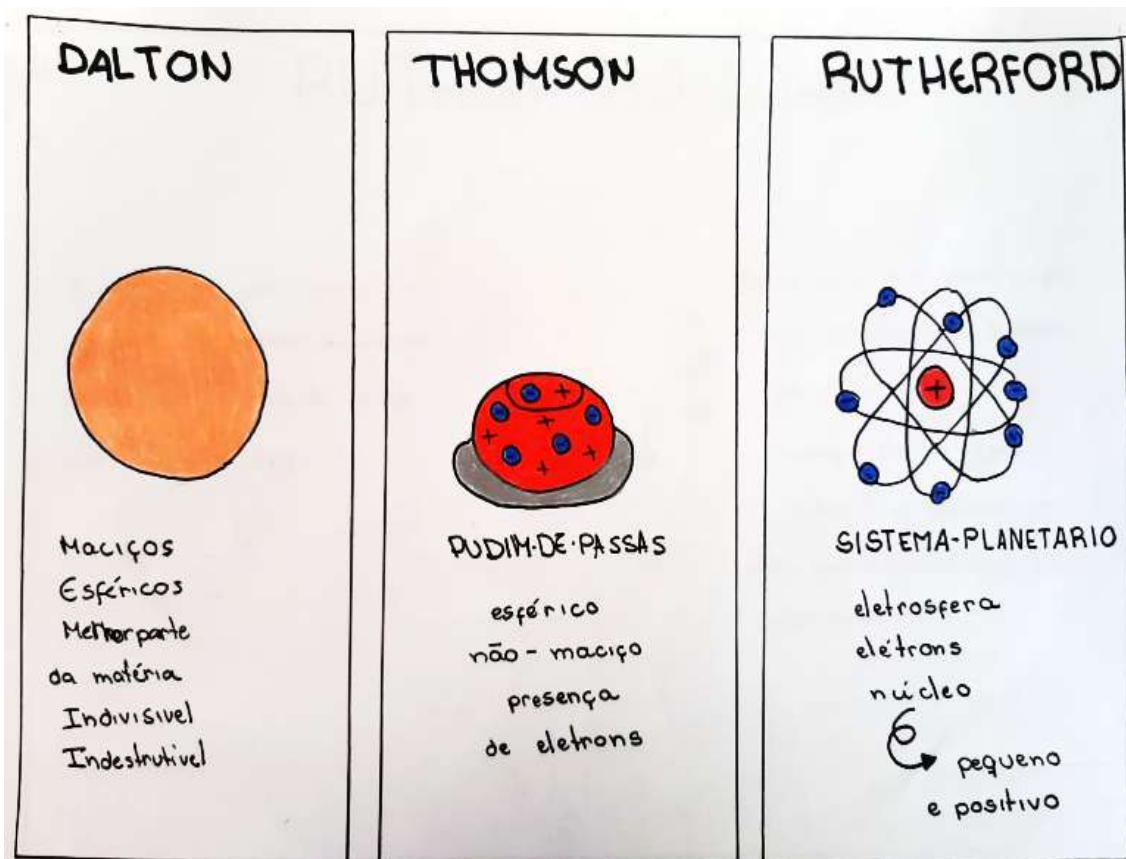 DALTON
Maciços
Esféricos
parte
da matéria
Indivisivel
Indestrutivel
THOMSON
PUDIM-DE-PASSAS
esférico
não-maciço
presença
de eletrons
RUTHERFORD
SISTEMA-PLANETARIO
eletrosfera
elétrons
núcleo
pequeno
e positivo